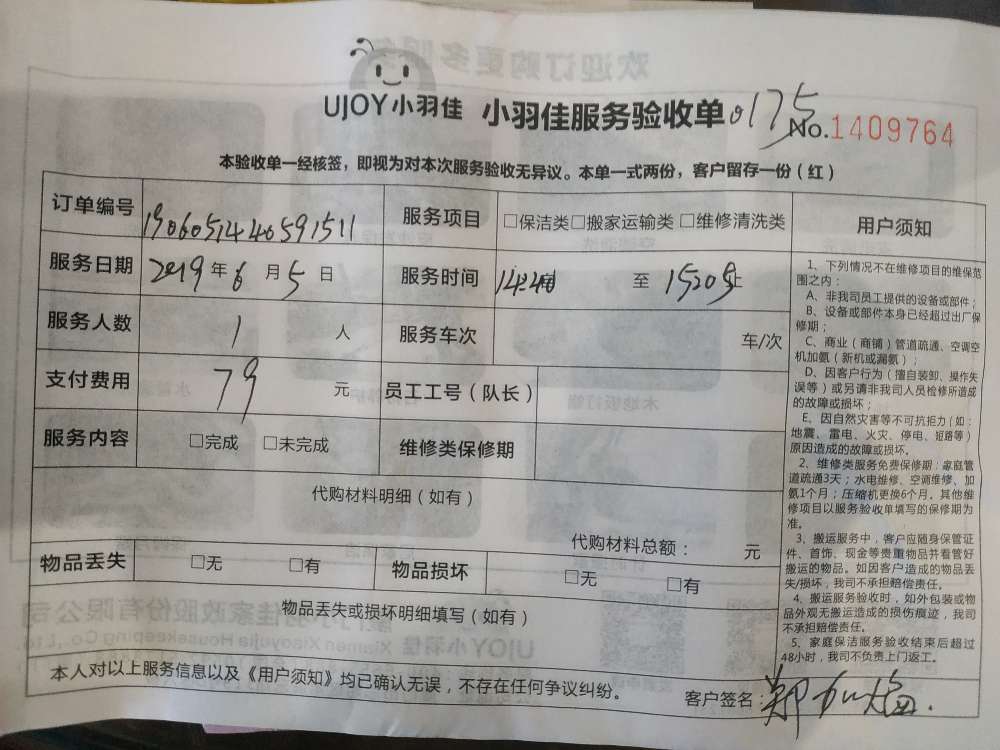 UJOY小羽佳 小羽佳服务验收单 0175 No.1409764
本验收单一经核签，即视为对本次服务验收无异议。本单一式两份，客户留存一份（红）
订单编号 服务项目 □保洁类□搬家运输类 □维修清洗类
服务日期 2019 年 6 月 5 日 服务时间 至
服务人数 1 人 服务车次 车/次
支付费用 79 元 员工工号（队长）
服务内容 □完成 □未完成 维修类保修期
代购材料明细（如有）
代购材料总额： 元
物品丢失 □无 □有 物品损坏 □无 □有
物品丢失或损坏明细填写（如有）
本人对以上服务信息以及《用户须知》均已确认无误，不存在任何争议纠纷。
客户签名：
用户须知
1、下列情况不在维修项目的维保范
围之内：
A、非我司员工提供的设备或部件；
B、设备或部件本身已经超过出厂保
修期；
C、商业（商铺）管道疏通、空调空
机加氨（新机或漏氨）；
D、因客户行为（擅自装卸、操作失
误等）或另请非我司人员检修所造成
的故障或损坏；
E、因自然灾害等不可抗拒力（如：
地震、雷电、火灾、停电、短路等）
原因造成的故障或损坏。
2、维修类服务免费保修期：家庭管
道疏通3天；水电维修、空调维修、加
氨1个月；压缩机更换6个月。其他维
修项目以服务验收单填写的保修期为
准。
3、搬运服务中，客户应随身保管证
件、首饰、现金等贵重物品并看管好
搬运的物品。如因客户造成的物品丢
失/损坏，我司不承担赔偿责任。
4、搬运服务验收时，如外包装或物
品外观无搬运造成的损伤痕迹，我司
不承担赔偿责任。
5、家庭保洁服务验收结束后超过
48小时，我司不负责上门返工。